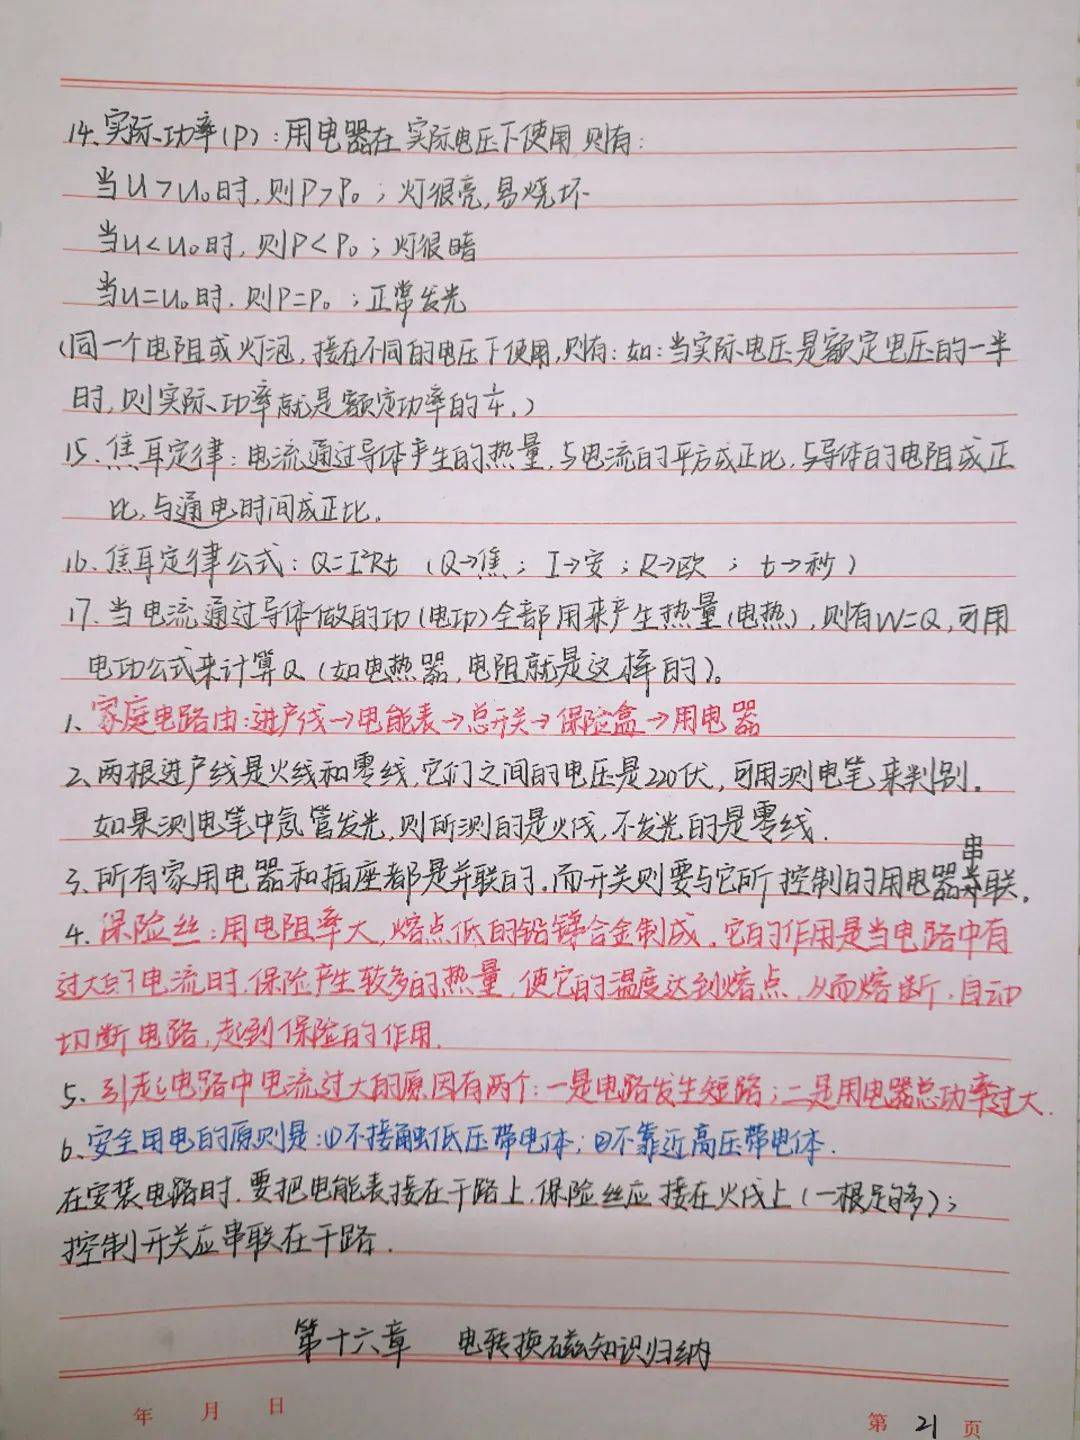 14、实际功率(P)：用电器在实际电压下使用,则有：
当U＞U₀时,则P＞P₀；灯很亮,易烧坏
当U＜U₀时,则P＜P₀；灯很暗
当U=U₀时.则P=P₀；正常发光
(同一个电阻或灯泡,接在不同的电压下使用,则有：如：当实际电压是额定电压的一半
时,则实际功率就是额定功率的1/4.)
15、焦耳定律：电流通过导体产生的热量,与电流的平方成正比,与导体的电阻成正
比,与通电时间成正比。
16、焦耳定律公式：Q=I²Rt (Q→焦；I→安；R→欧；t→秒)
17、当电流通过导体做的功(电功)全部用来产生热量(电热),则有W=Q,可用
电功公式来计算Q(如电热器,电阻就是这样的)。
1、家庭电路由：进户线→电能表→总开关→保险盒→用电器
2、两根进户线是火线和零线,它们之间的电压是220伏,可用测电笔来判别。
如果测电笔中氖管发光,则所测的是火线,不发光的是零线.
3、所有家用电器和插座都是并联的.而开关则要与它所控制的用电器串联。
4、保险丝：用电阻率大,熔点低的铅锑合金制成。它的作用是当电路中有
过大的电流时.保险产生较多的热量,使它的温度达到熔点,从而熔断,自动
切断电路,起到保险的作用.
5、引起电路中电流过大的原因有两个：一是电路发生短路；二是用电器总功率过大.
6、安全用电的原则是：①不接触低压带电体；②不靠近高压带电体.
在安装电路时.要把电能表接在干路上,保险丝应接在火线上(一根足够)；
控制开关应串联在干路.
第十六章 电转换磁知识归纳
年 月 日
第 21 页